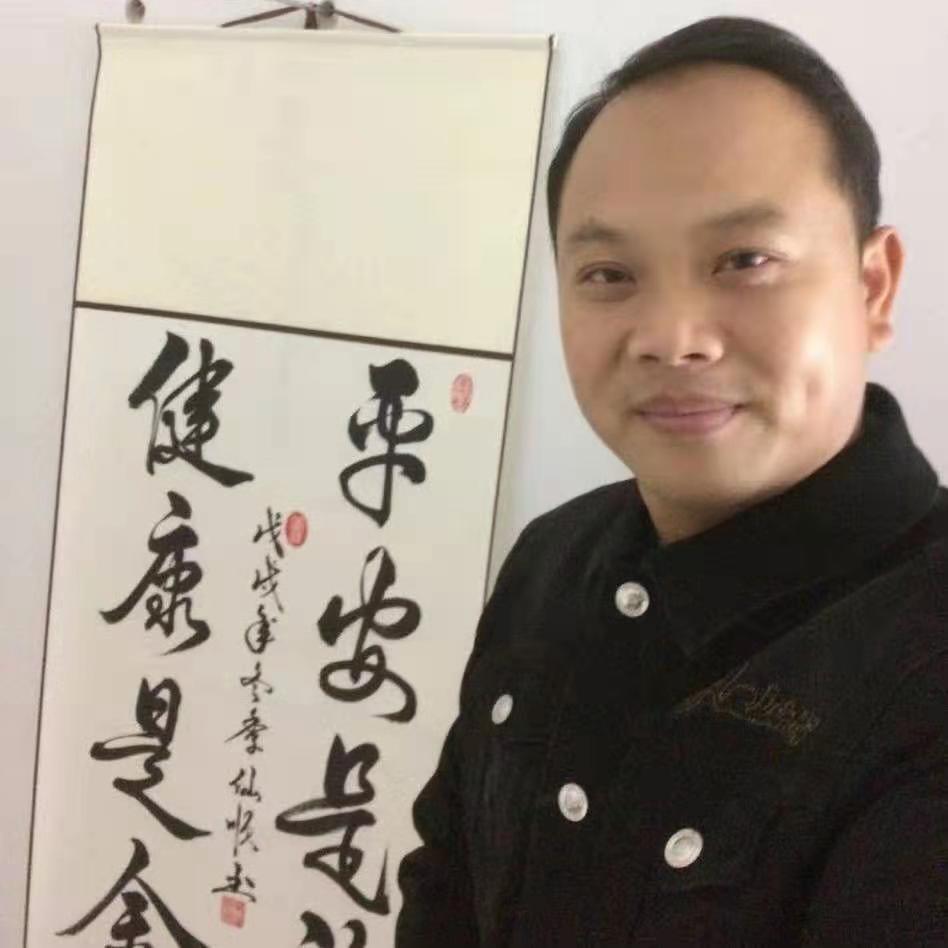 平安是
健康是金
戊戌年冬季仙顺书